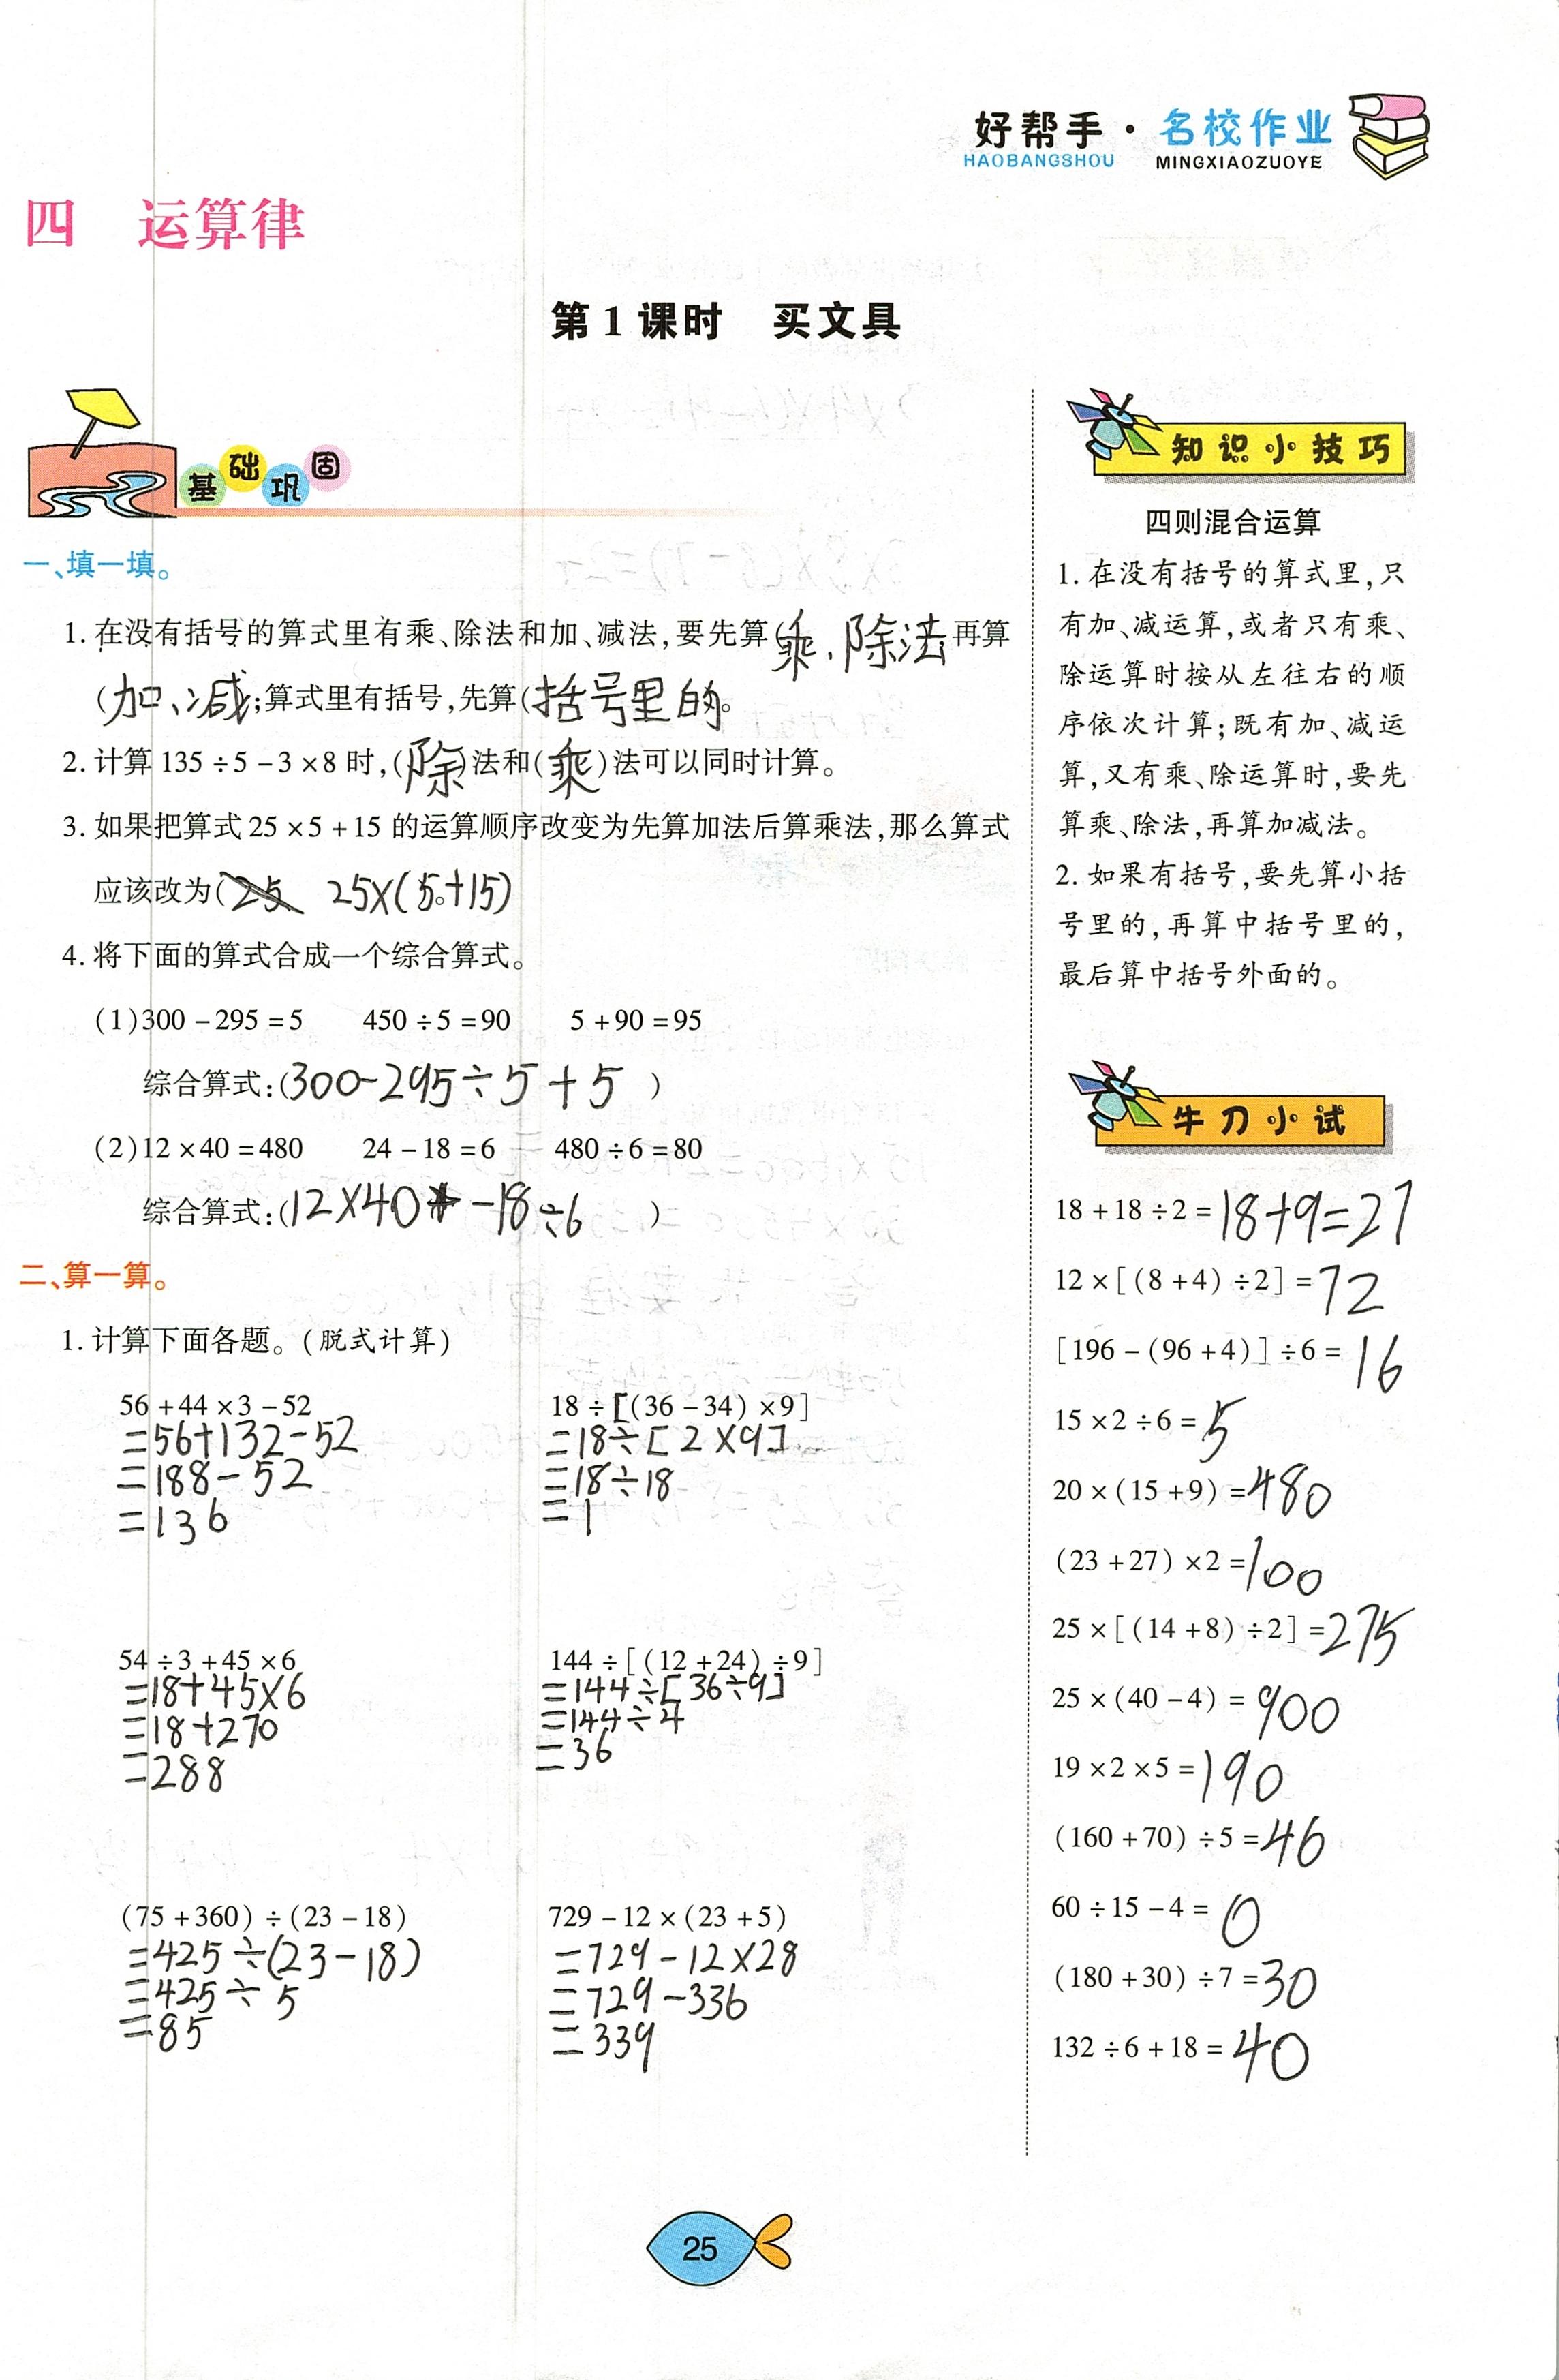 好帮手·名校作业
HAOBANGSHOU MINGXIAOZUOYE
四 运算律
第1课时 买文具
基础巩固
一、填一填。
1.在没有括号的算式里有乘、除法和加、减法,要先算(乘、除法再算
(加、减;算式里有括号,先算(括号里的。
2.计算135÷5-3×8时,(除)法和(乘)法可以同时计算。
3.如果把算式25×5+15的运算顺序改变为先算加法后算乘法,那么算式
应该改为(25 25×(5+15)。
4.将下面的算式合成一个综合算式。
(1)300-295=5 450÷5=90 5+90=95
综合算式:(300-295÷5+5)
(2)12×40=480 24-18=6 480÷6=80
综合算式:(12×40 -18÷6)
二、算一算。
1.计算下面各题。(脱式计算)
56+44×3-52 18÷[(36-34)×9]
=56+132-52 =18÷[2×9]
=188-52 =18÷18
=136 =1
54÷3+45×6 144÷[(12+24)÷9]
=18+45×6 =144÷[36÷9]
=18+270 =144÷4
=288 =36
(75+360)÷(23-18) 729-12×(23+5)
=425÷(23-18) =729-12×28
=425÷5 =729-336
=85 =339
知识小技巧
四则混合运算
1.在没有括号的算式里,只
有加、减运算,或者只有乘、
除运算时按从左往右的顺
序依次计算;既有加、减运
算,又有乘、除运算时,要先
算乘、除法,再算加减法。
2.如果有括号,要先算小括
号里的,再算中括号里的,
最后算中括号外面的。
牛刀小试
18+18÷2=18+9=27
12×[(8+4)÷2]=72
[196-(96+4)]÷6=16
15×2÷6=5
20×(15+9)=480
(23+27)×2=100
25×[(14+8)÷2]=275
25×(40-4)=900
19×2×5=190
(160+70)÷5=46
60÷15-4=0
(180+30)÷7=30
132÷6+18=40
25